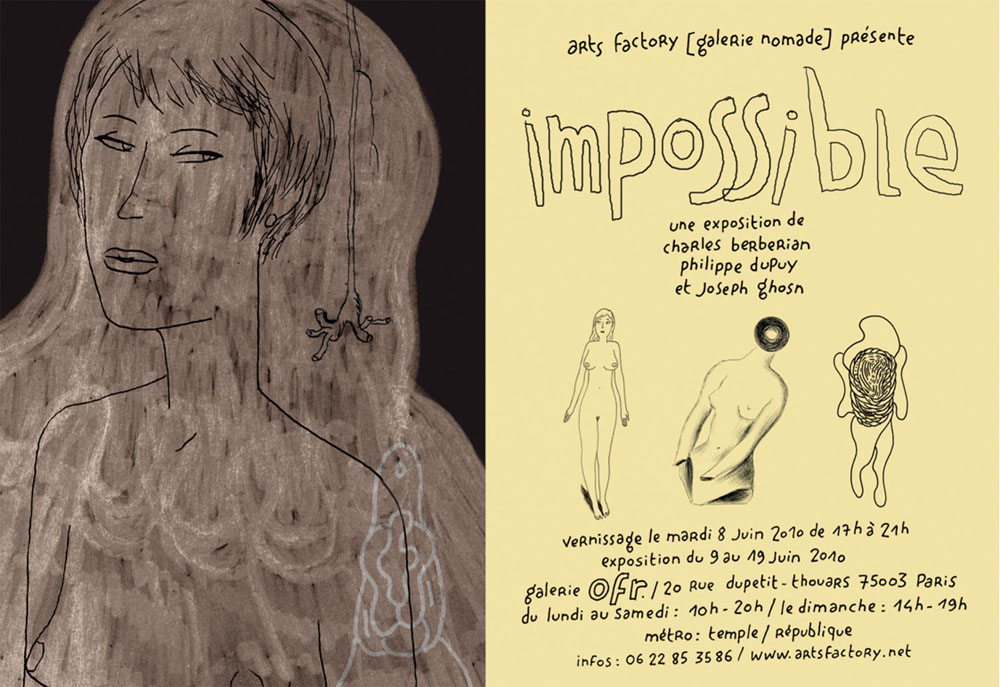 arts factory [galerie nomade] présente
impossible
une exposition de
charles berberian
philippe dupuy
et joseph ghosn
vernissage le mardi 8 juin 2010 de 17h à 21h
exposition du 9 au 19 juin 2010
galerie ofr. / 20 rue dupetit-thouars 75003 Paris
du lundi au samedi : 10h - 20h / le dimanche : 14h - 19h
métro : temple / république
infos : 06 22 85 35 86 / www.artsfactory.net